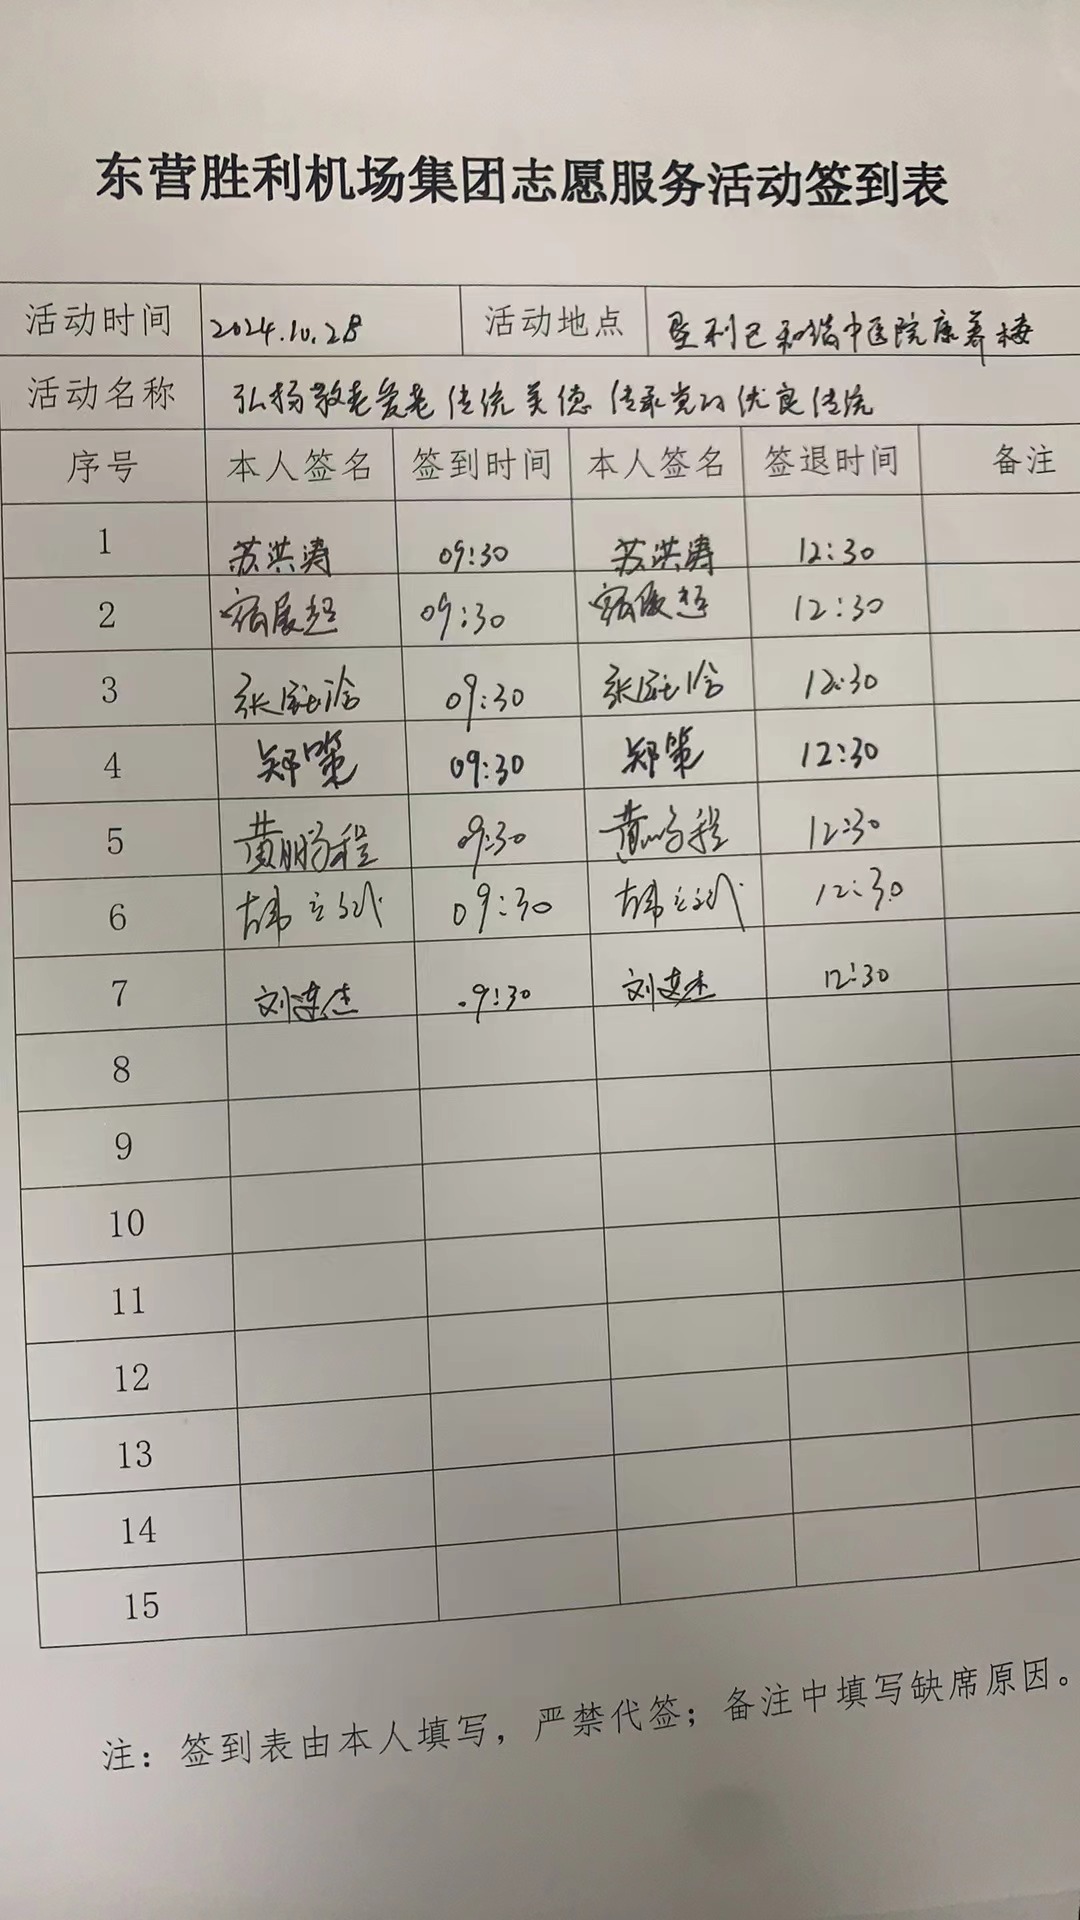 东营胜利机场集团志愿服务活动签到表
活动时间 2024.10.28 活动地点 垦利区和谐中医院康养楼
活动名称 弘扬敬老爱老传统美德 传承党的优良传统
序号 本人签名 签到时间 本人签名 签退时间 备注
1 苏洪涛 09:30 苏洪涛 12:30
2 展超 09:30 展超 12:30
3 张 09:30 张 12:30
4 郑策 09:30 郑策 12:30
5 黄鹏程 09:30 黄鹏程 12:30
6 09:30 12:30
7 刘英杰 09:30 刘英杰 12:30
8
9
10
11
12
13
14
15
注：签到表由本人填写，严禁代签；备注中填写缺席原因。